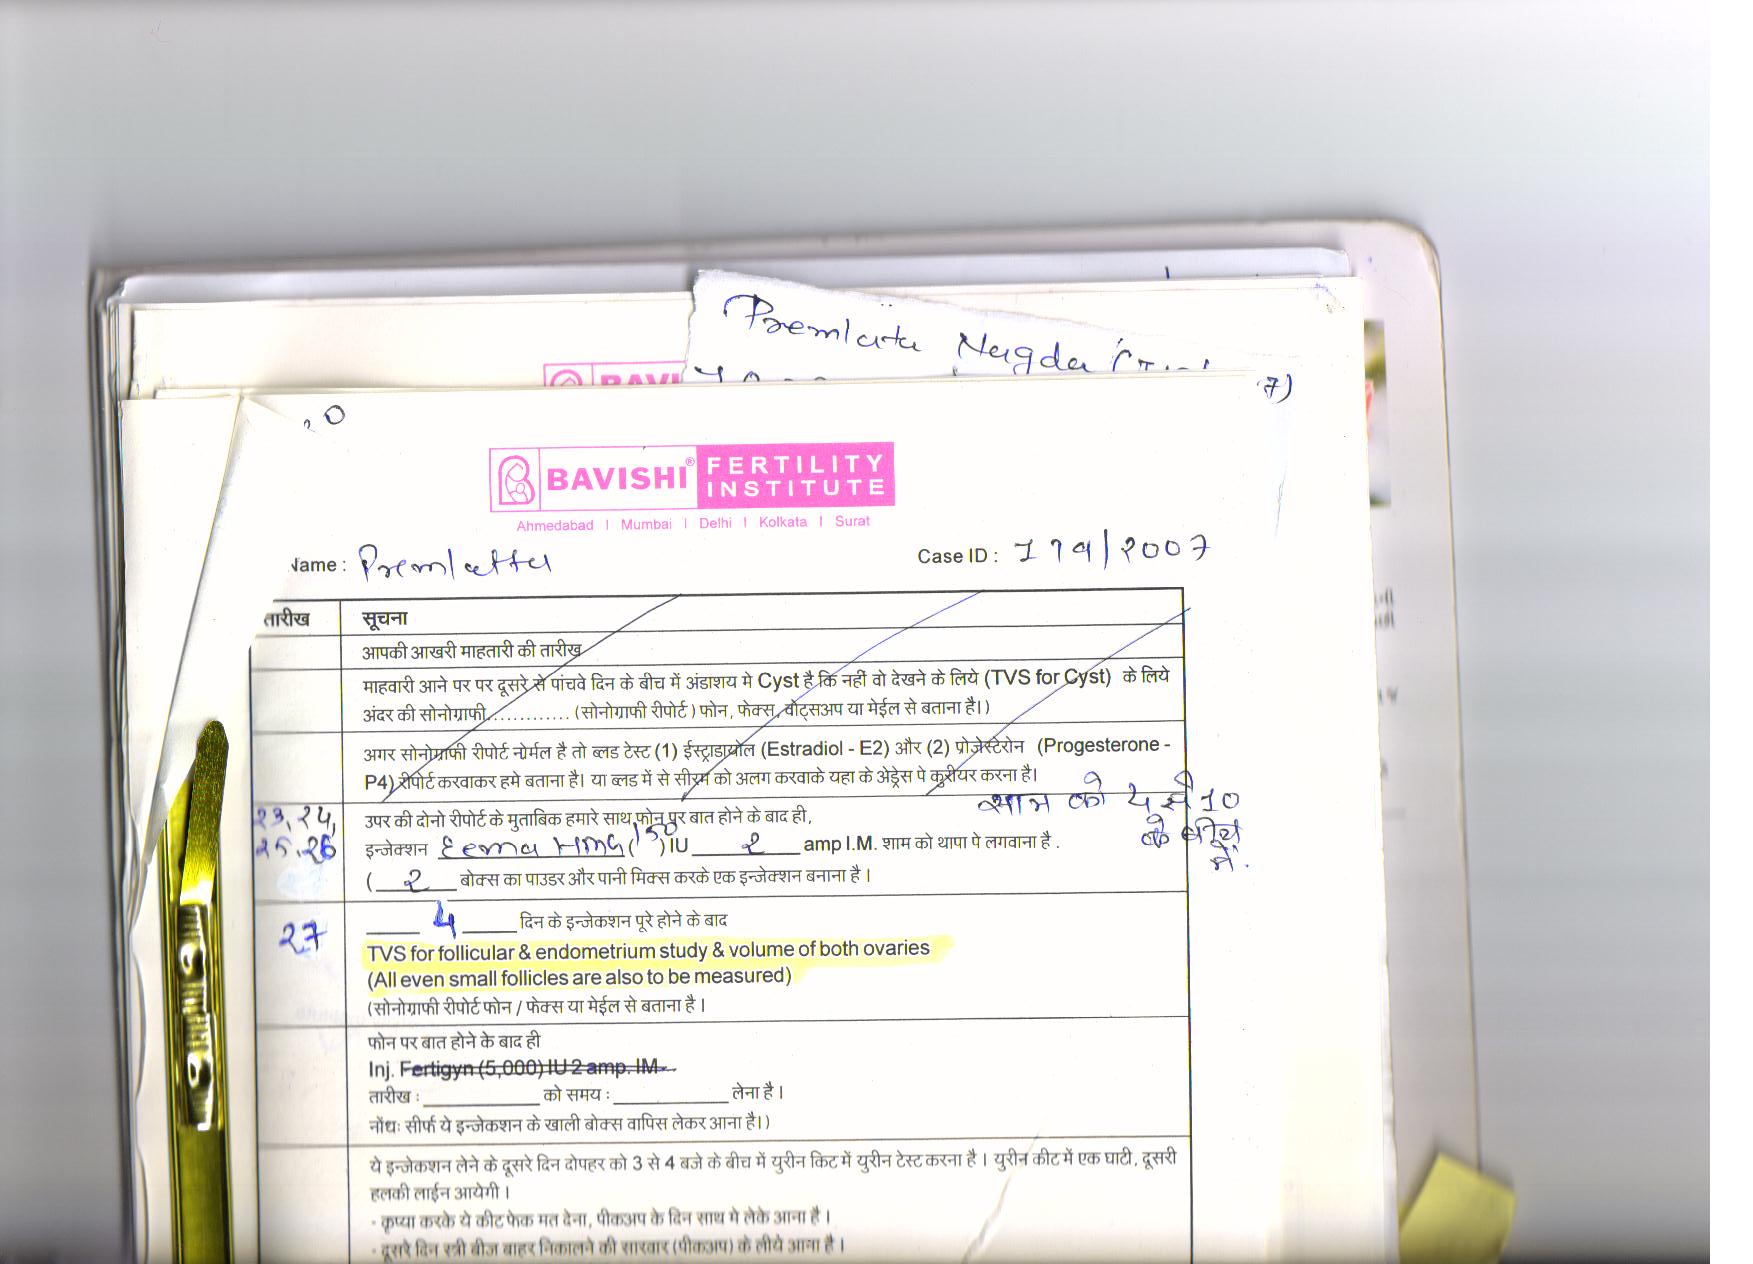 Premlata Nagda
BAVI
7)
0
BAVISHI® FERTILITY INSTITUTE
Ahmedabad | Mumbai | Delhi | Kolkata | Surat
Name : Premlatta
Case ID : 179/2007
तारीख सूचना
आपकी आखरी माहतारी की तारीख
माहवारी आने पर पर दूसरे से पांचवे दिन के बीच में अंडाशय मे Cyst है कि नहीं वो देखने के लिये (TVS for Cyst) के लिये
अंदर की सोनोग्राफी............. (सोनोग्राफी रीपोर्ट) फोन, फेक्स, वोट्सअप या मेईल से बताना है।)
अगर सोनोग्राफी रीपोर्ट नोर्मल है तो ब्लड टेस्ट (1) ईस्ट्राडायोल (Estradiol - E2) और (2) प्रोजेस्टेरोन (Progesterone -
P4) रीपोर्ट करवाकर हमे बताना है। या ब्लड में से सीरम को अलग करवाके यहा के अेड्रेस पे कुरीयर करना है।
शाम को 4 से 10
के बीच
में.
23, 24, उपर की दोनो रीपोर्ट के मुताबिक हमारे साथ फोन पर बात होने के बाद ही,
25, 26 इन्जेक्शन Eema HMG (150) IU 2 amp I.M. शाम को थापा पे लगवाना है .
( 2 बोक्स का पाउडर और पानी मिक्स करके एक इन्जेक्शन बनाना है ।
27 4 दिन के इन्जेकशन पूरे होने के बाद
TVS for follicular & endometrium study & volume of both ovaries
(All even small follicles are also to be measured)
(सोनोग्राफी रीपोर्ट फोन / फेक्स या मेईल से बताना है ।
फोन पर बात होने के बाद ही
Inj. Fertigyn (5,000) IU 2 amp. IM
तारीख : __________ को समय : __________ लेना है ।
नोंधः सीर्फ ये इन्जेकशन के खाली बोक्स वापिस लेकर आना है।)
ये इन्जेकशन लेने के दूसरे दिन दोपहर को 3 से 4 बजे के बीच में युरीन किट में युरीन टेस्ट करना है । युरीन कीट में एक घाटी, दूसरी
हलकी लाईन आयेगी ।
- कृप्या करके ये कीट फेक मत देना, पीकअप के दिन साथ मे लेके आना है ।
- दूसरे दिन स्त्री बीज बाहर निकालने की सारवार (पीकअप) के लीये आना है ।